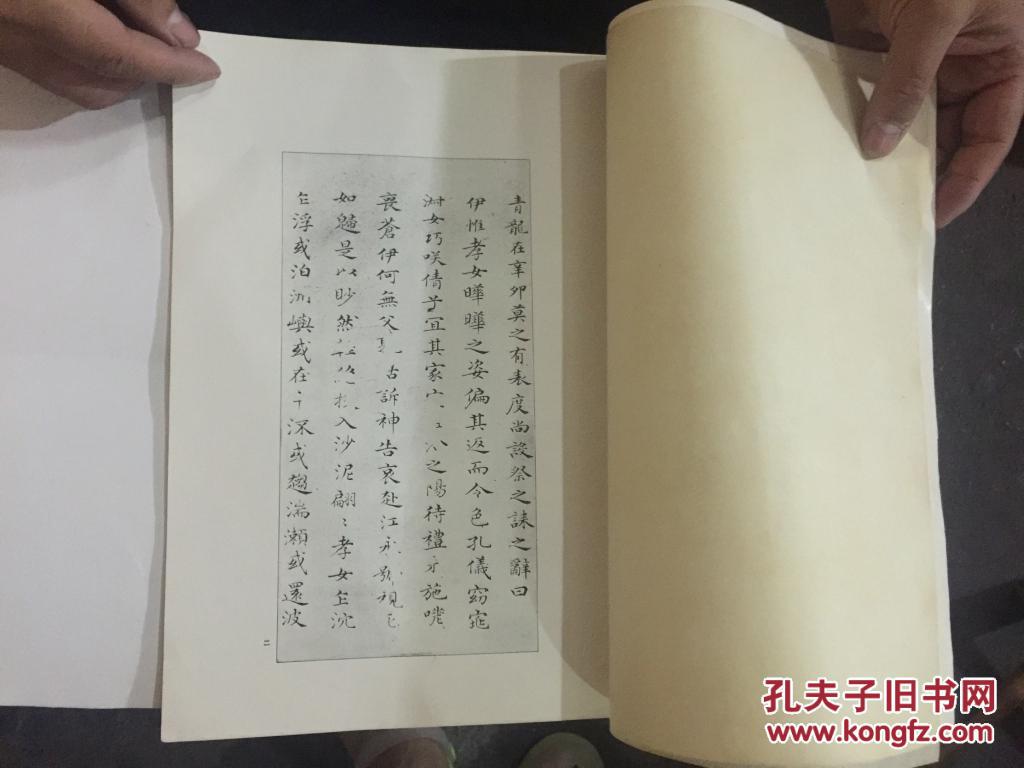 青龍在辛卯莫之有表度尚設祭之誄之辭曰
伊惟孝女曄曄之姿偏其返而令色孔儀窈窕
淑女巧咲倩兮宜其家室在洽之陽待禮未施嗟
喪蒼伊何無父孰怙訴神告哀赴江永號視死
如歸是以眇然輕絕投入沙泥翩〻孝女乍沈
乍浮或泊洲嶼或在中深或趨湍瀨或還波
二
孔夫子旧书网
www.kongfz.com